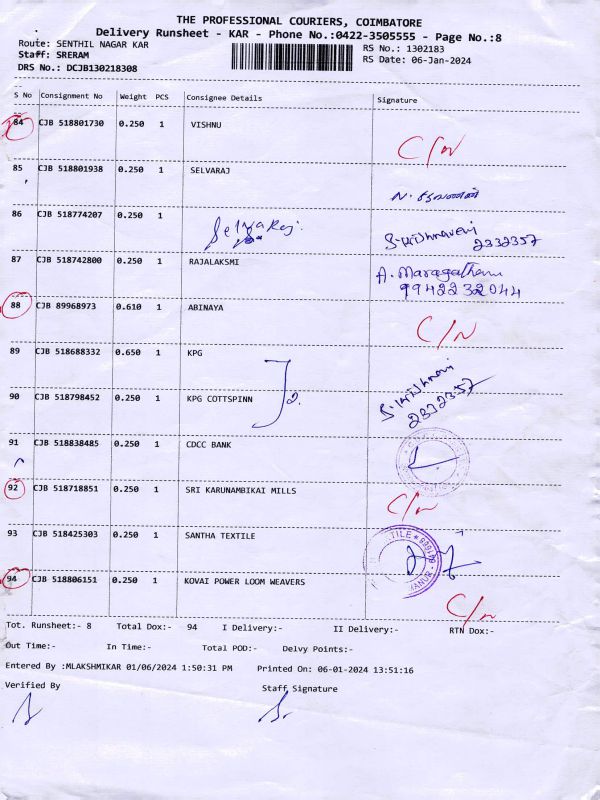 THE PROFESSIONAL COURIERS, COIMBATORE
Delivery Runsheet - KAR - Phone No.:0422-3505555 - Page No.:8
Route: SENTHIL NAGAR KAR RS No.: 1302183
Staff: SRERAM RS Date: 06-Jan-2024
DRS No.: DCJB130218308
S No Consignment No Weight PCS Consignee Details Signature
84 CJB 518801730 0.250 1 VISHNU C/N
85 CJB 518801938 0.250 1 SELVARAJ
86 CJB 518774207 0.250 1 Selvaraj S. Krishnaveni
2332357
87 CJB 518742800 0.250 1 RAJALAKSMI A. Maragatham
9942232044
88 CJB 89968973 0.610 1 ABINAYA C/N
89 CJB 518688332 0.650 1 KPG
90 CJB 518798452 0.250 1 KPG COTTSPINN S. Krishnaveni
2332357
91 CJB 518838485 0.250 1 CDCC BANK
92 CJB 518718851 0.250 1 SRI KARUNAMBIKAI MILLS C/N
93 CJB 518425303 0.250 1 SANTHA TEXTILE
94 CJB 518806151 0.250 1 KOVAI POWER LOOM WEAVERS C/N
Tot. Runsheet:- 8 Total Dox:- 94 I Delivery:- II Delivery:- RTN Dox:-
Out Time:- In Time:- Total POD:- Delvy Points:-
Entered By :MLAKSHMIKAR 01/06/2024 1:50:31 PM Printed On: 06-01-2024 13:51:16
Verified By Staff Signature